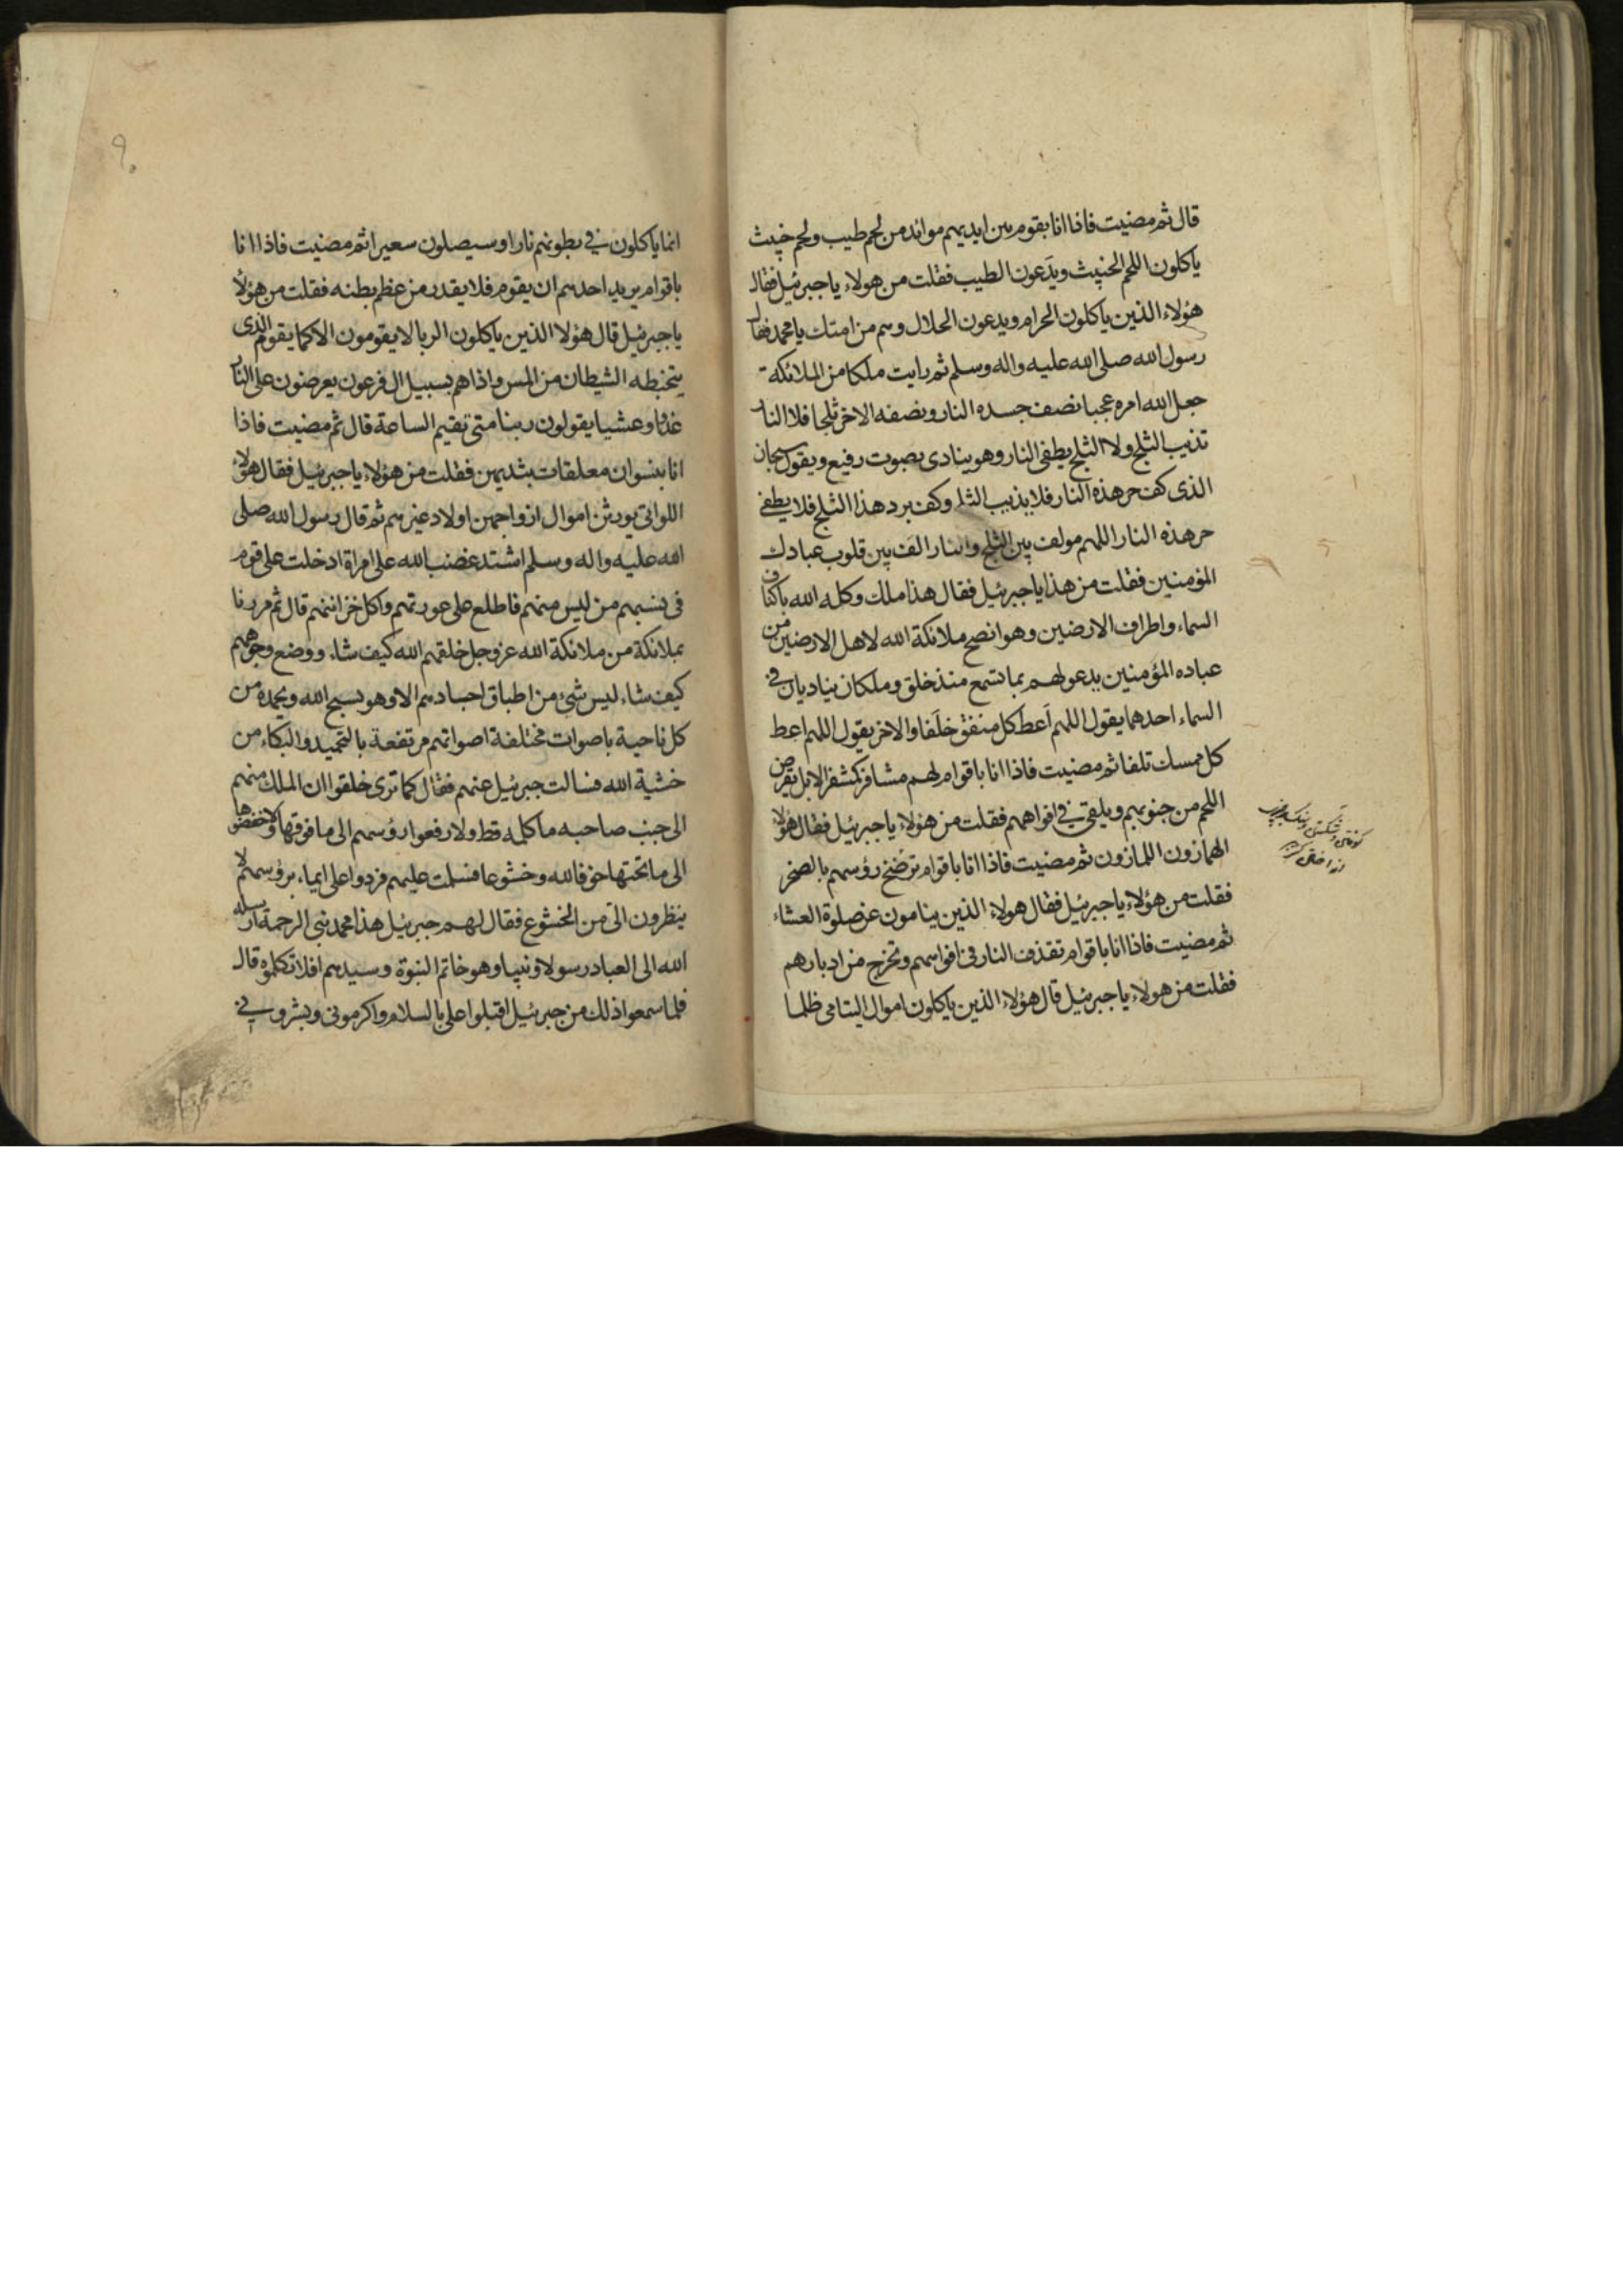 قال ثم مضيت فاذا انا بقوم بين ايديهم موائد من لحم طيب ولحم خبيث
ياكلون اللحم الخبيث ويدَعون الطيب فقلت من هولاء يا جبرئيل فقال
هؤلاء الذين ياكلون الحرام ويدعون الحلال وهم من امتك يا محمد فقال
رسول الله صلى الله عليه واله وسلم ثم رايت ملكا من الملائكة
جعل الله امره عجبا نصف جسده النار ونصفه الاخر ثلجا فلا النار
تذيب الثلج ولا الثلج يطفى النار وهو ينادى بصوت رفيع ويقول سبحان
الذى كف حر هذه النار فلا يذيب الثلج وكف برد هذا الثلج فلا يطفئ
حر هذه النار اللهم مولف بين الثلج والنار الف بين قلوب عبادك
المؤمنين فقلت من هذا يا جبرئيل فقال هذا ملك وكله الله باكناف
السماء واطراف الارضين وهو انصح ملائكة الله لاهل الارضين من
عباده المؤمنين يدعو لهم بما تسمع منذ خلق وملكان يناديان فى
السماء احدهما يقول اللهم اَعط كل منفق خلَفا والاخر يقول اللهم اعط
كل ممسك تلفا ثم مضيت فاذا انا باقوام لهم مشافر كمشفر الابل يقرض
اللحم من جنوبهم ويلقى فى افواههم فقلت من هؤلاء يا جبرئيل فقال هؤلا
الهمازون اللمازون ثم مضيت فاذا انا باقوام ترضخ رؤسهم بالصخر
فقلت من هؤلاء يا جبرئيل فقال هولاء الذين ينامون عن صلوة العشاء
ثم مضيت فاذا انا باقوام تقذف النار فى افواههم وتخرج من ادبارهم
فقلت من هولاء يا جبرئيل قال هؤلاء الذين ياكلون اموال اليتامى ظلما
كوفتن وشكستن
انداختن
٩٠
انما ياكلون فى بطونهم نارا وسيصلون سعيرا ثم مضيت فاذا انا
باقوام يريد احدهم ان يقوم فلا يقدر من عظم بطنه فقلت من هؤلا
يا جبرئيل قال هؤلا الذين ياكلون الربا لا يقومون الا كما يقوم الذى
يتخبطه الشيطان من المس واذا هم بسبيل ال فرعون يعرضون على النار
غدوا وعشيا يقولون ربنا متى تقيم الساعة قال ثم مضيت فاذا
انا بنسوان معلقات بثديهن فقلت من هؤلاء يا جبرئيل فقال هؤلا
اللواتى يورثن اموال ازواجهن اولاد غيرهم ثم قال رسول الله صلى
الله عليه واله وسلم اشتد غضب الله على امراة ادخلت على قوم
فى نسبهم من ليس منهم فاطلع على عورتهم واكل خزائنهم قال ثم مررنا
بملائكة من ملائكة الله عز وجل خلقهم الله كيف شاء ووضع وجوههم
كيف شاء ليس شئ من اطباق اجسادهم الا وهو يسبح الله ويحمده من
كل ناحية باصوات مختلفة اصواتهم مرتفعة بالتحميد والبكاء من
خشية الله فسالت جبرئيل عنهم فقال كما ترى خلقوا ان الملك منهم
الى جنب صاحبه ما كلمه قط ولا رفعوا رؤسهم الى ما فوقها ولا خفضوها
الى ما تحتها خوفا لله وخشوعا فسلمت عليهم فردوا على ايماء برؤسهم لا
ينظرون الى من الخشوع فقال لهم جبرئيل هذا محمد نبى الرحمة ارسله
الله الى العباد رسولا ونبيا وهو خاتم النبوة وسيدهم افلا تكلموه قال
فلما سمعوا ذلك من جبرئيل اقبلوا على بالسلام واكرمونى وبشرونى